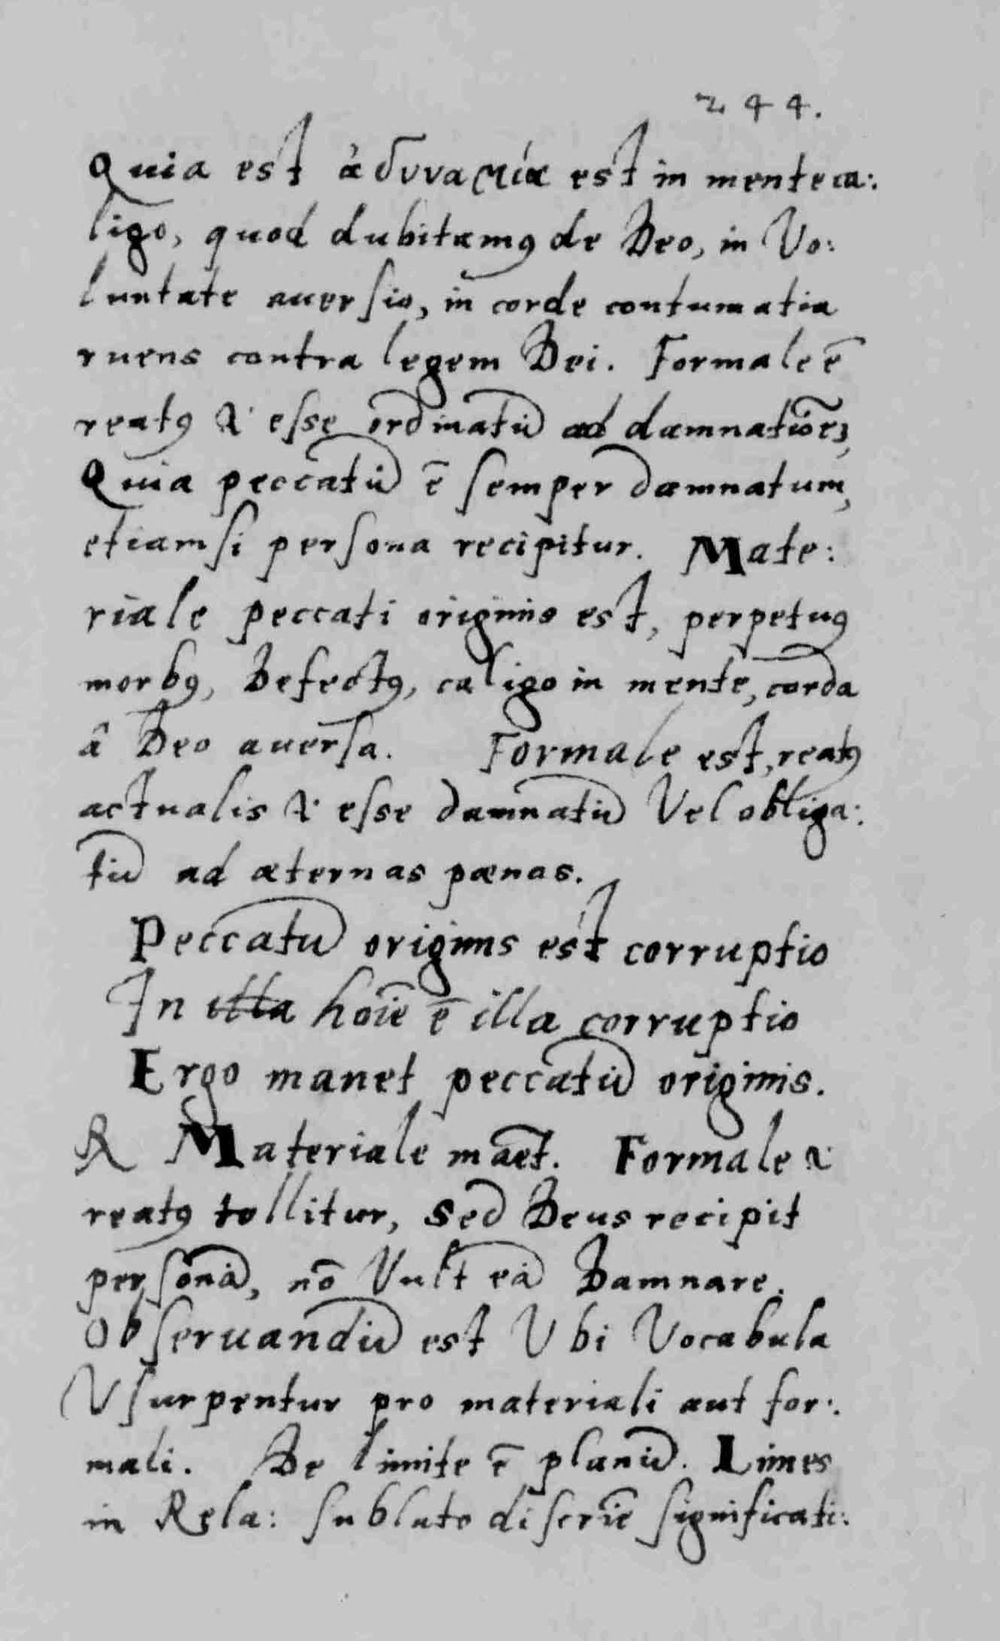 244.
Quia est ἀδυναμία est in mente ca:
ligo, quod dubitamꝰ de Deo, in Vo:
luntate auersio, in corde contumatia
ruens contra legem Dei. Formale ē
reatꝰ & esse ordinatū ad damnatiōeꝫ,
Quia peccatū ē semper damnatum,
etiamsi persona recipitur. Mate:
riale peccati originis est, perpetuꝰ
morbꝰ, Defectꝰ, caligo in mente, corda
â Deo auersa. Formale est, reatꝰ
actualis & esse damnatū Vel obliga:
tū ad æternas pœnas.
Peccatū originis est corruptio
In illa hoīe ē illa corruptio
Ergo manet peccatū originis.
R Materiale māet. Formale &
reatꝰ tollitur, sed Deus recipit
personā, nō Vult eā Damnare.
Obseruandū est Vbi Vocabula
Vsurpentur pro materiali aut for:
mali. De limite ē planū. Limes
in Rela: sublato discrīe significati: